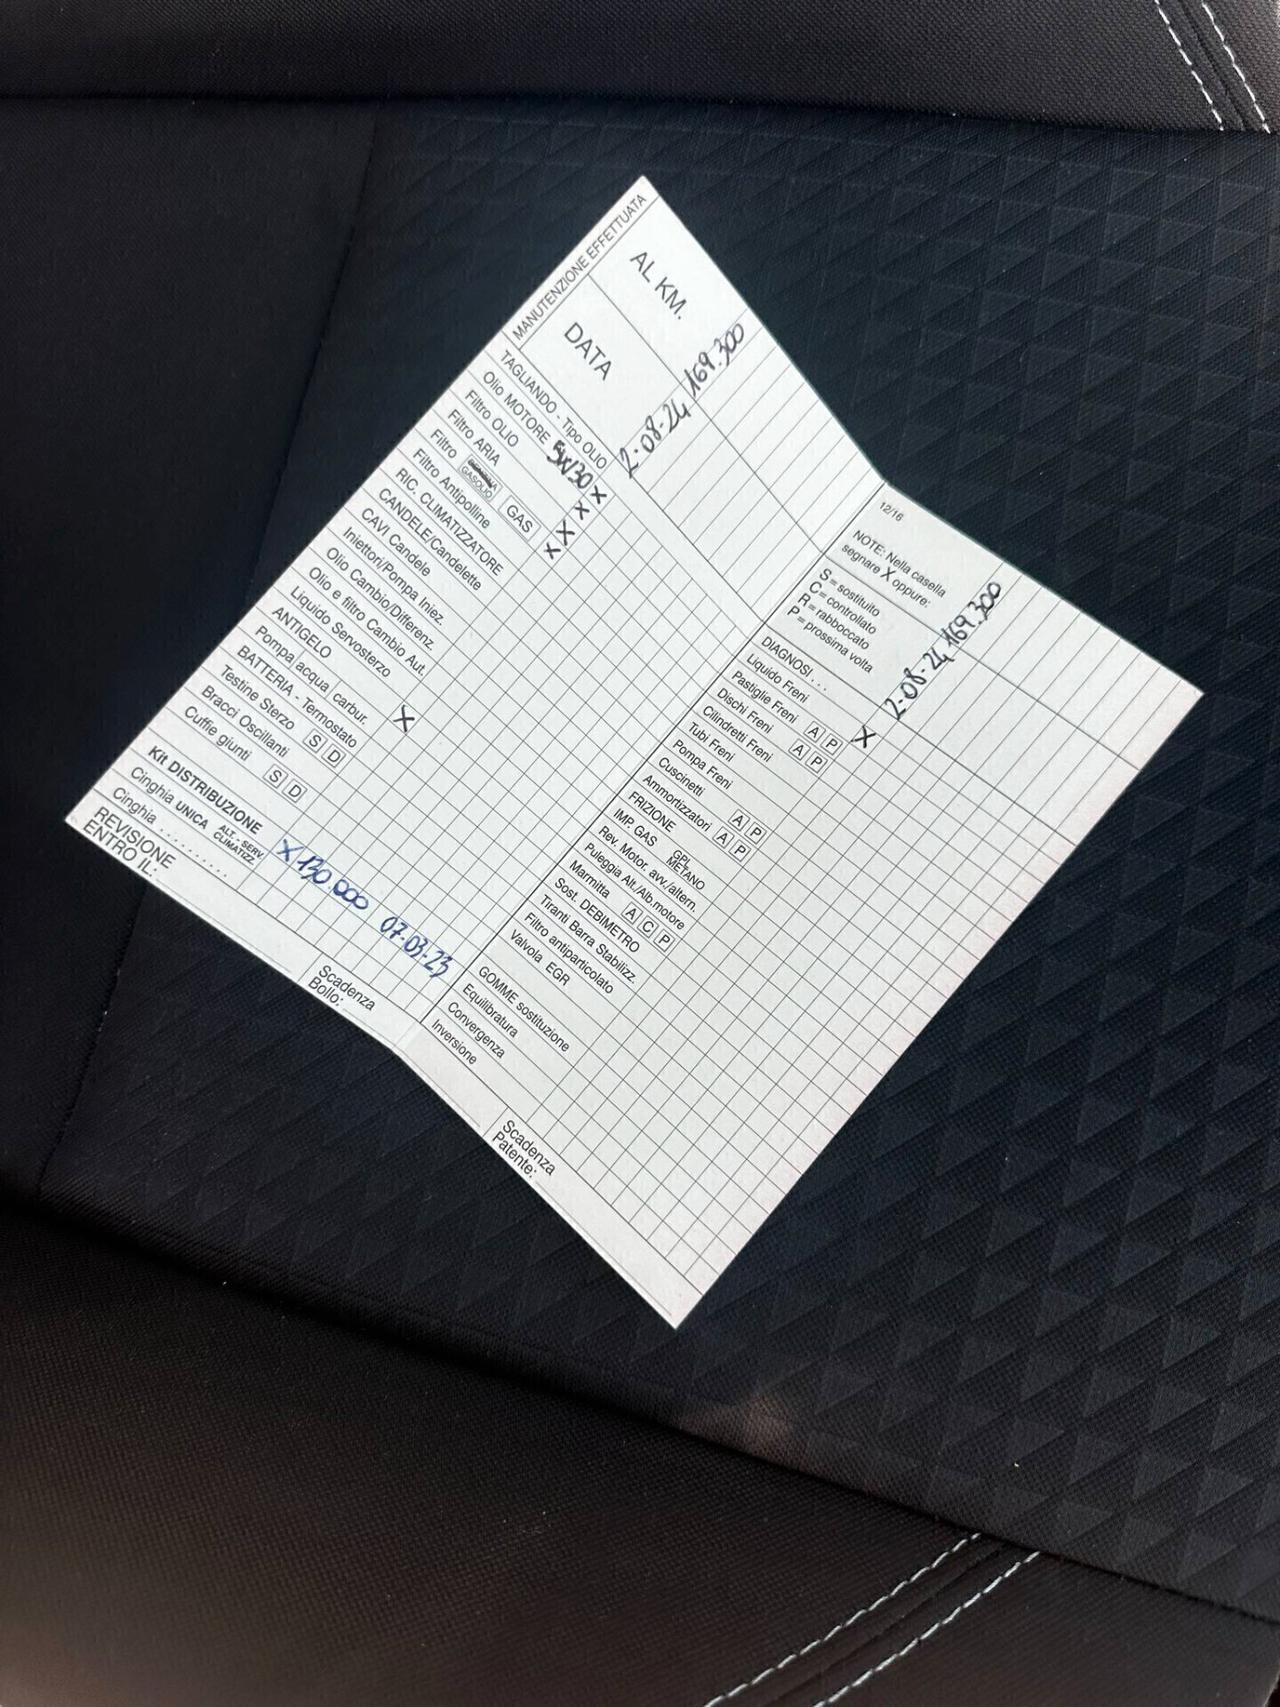 MANUTENZIONE EFFETTUATA
AL KM.
169.300
DATA
2-08-24
TAGLIANDO - Tipo OLIO
Olio MOTORE 5W30 X
Filtro OLIO X
Filtro ARIA X
Filtro GASOLIO GAS X
Filtro Antipolline
RIC. CLIMATIZZATORE
CANDELE/Candelette
CAVI Candele
Iniettori/Pompa Iniez.
Olio Cambio/Differenz.
Olio e filtro Cambio Aut.
Liquido Servosterzo
ANTIGELO
Pompa acqua carbur.
BATTERIA - Termostato X
Testine Sterzo S D
Bracci Oscillanti
Cuffie giunti S D
Kit DISTRIBUZIONE X 130 000 07-03-23
Cinghia UNICA ALT. - SERV. CLIMATIZZ.
Cinghia . . . . . . . . . .
REVISIONE
ENTRO IL:
Scadenza
Bollo:
12/16
NOTE: Nella casella
segnare X oppure:
S = sostituito
C = controllato
R = rabboccato
P = prossima volta
2-08-24 169.300
DIAGNOSI . . . X
Liquido Freni
Pastiglie Freni A P
Dischi Freni A P
Cilindretti Freni
Tubi Freni
Pompa Freni
Cuscinetti A P
Ammortizzatori A P
FRIZIONE
IMP. GAS GPL METANO
Rev. Motor. avv./altern.
Puleggia Alt./Alb.motore
Marmitta A C P
Sost. DEBIMETRO
Tiranti Barra Stabilizz.
Filtro antiparticolato
Valvola EGR
GOMME sostituzione
Equilibratura
Convergenza
Inversione
Scadenza
Patente: